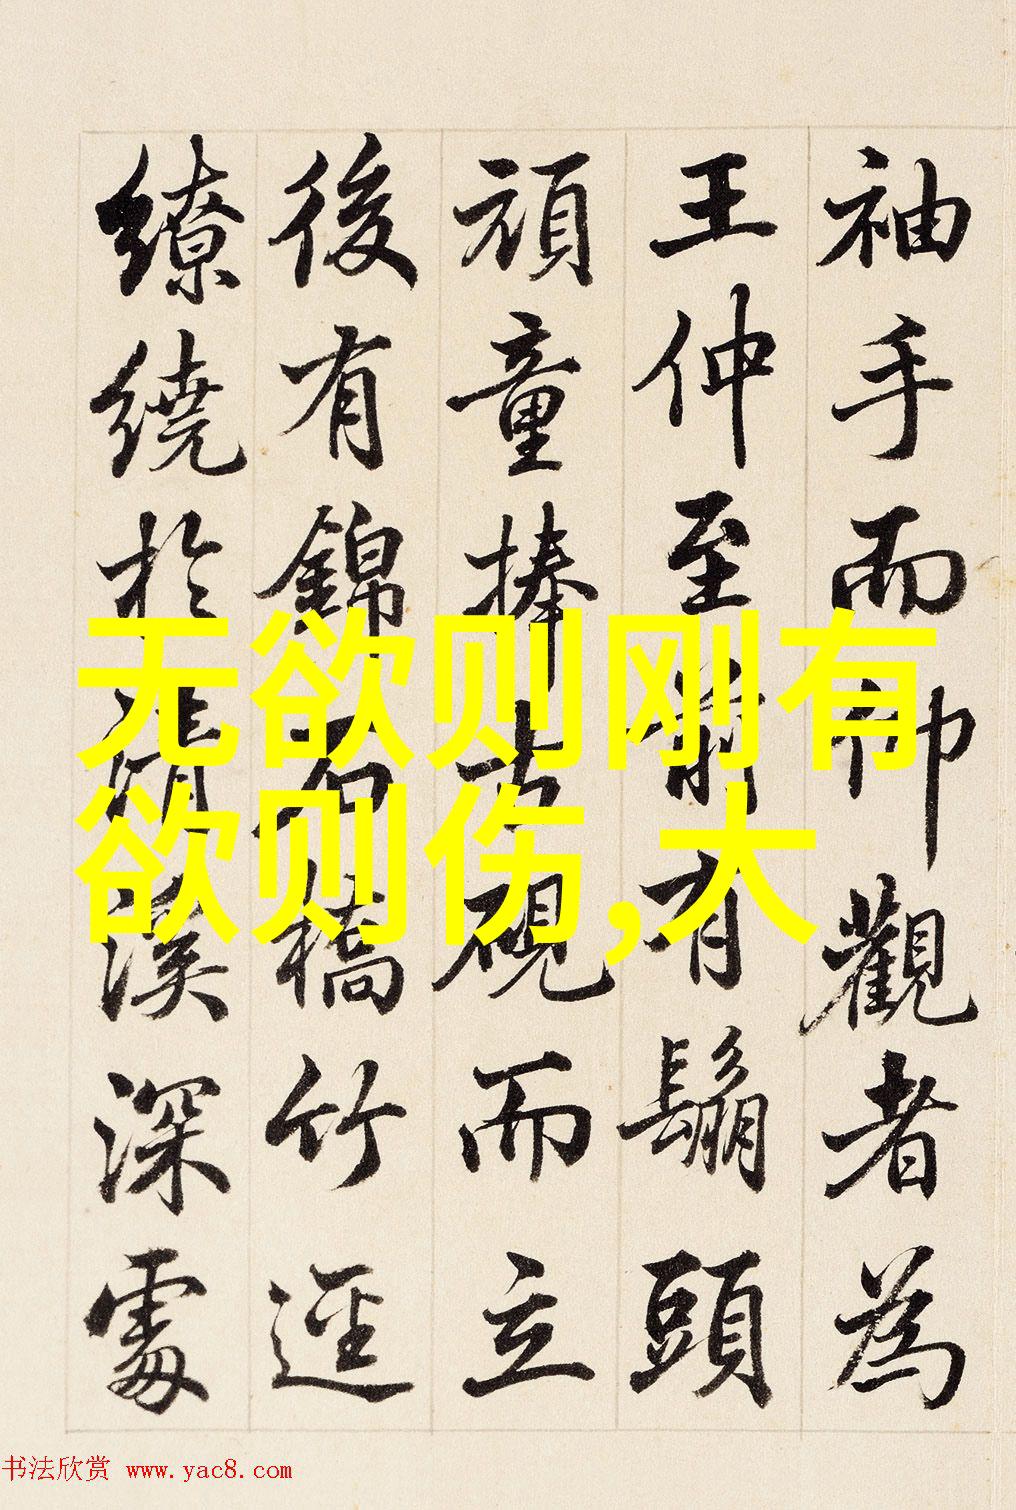 袖手而仰觀者為
王仲至前有鬅頭
頑童捧古硯而立
後有錦石橋竹逕
繚繞於清溪深處
无欲则刚有
欲则伤,大
书法欣赏 www.yac8.com